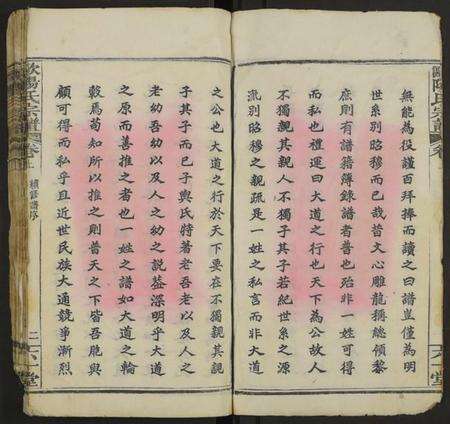 歐陽氏宗譜
卷
六一堂
無能為役謹百拜捧而讀之曰譜豈僅為明
世系別昭穆而已哉昔文心雕龍稱總領黎
庶則有譜籍簿錄譜者普也殆非一姓可得
而私也禮運曰大道之行也天下為公故人
不獨親其親人不獨子其子若紀世系之源
流別昭穆之親疏是一姓之私言而非大道
之公也大道之行於天下要在不獨親其親
子其子而已子輿氏特著老吾老以及人之
老幼吾幼以及人之幼之說蓋深明乎大道
之原而善推之者也一姓之譜如大道之輪
轂焉苟知所以推之則普天之下皆吾胞與
顧可得而私乎且近世民族大通競爭漸烈
歐陽氏宗譜
卷上
續修譜序
二
六一堂